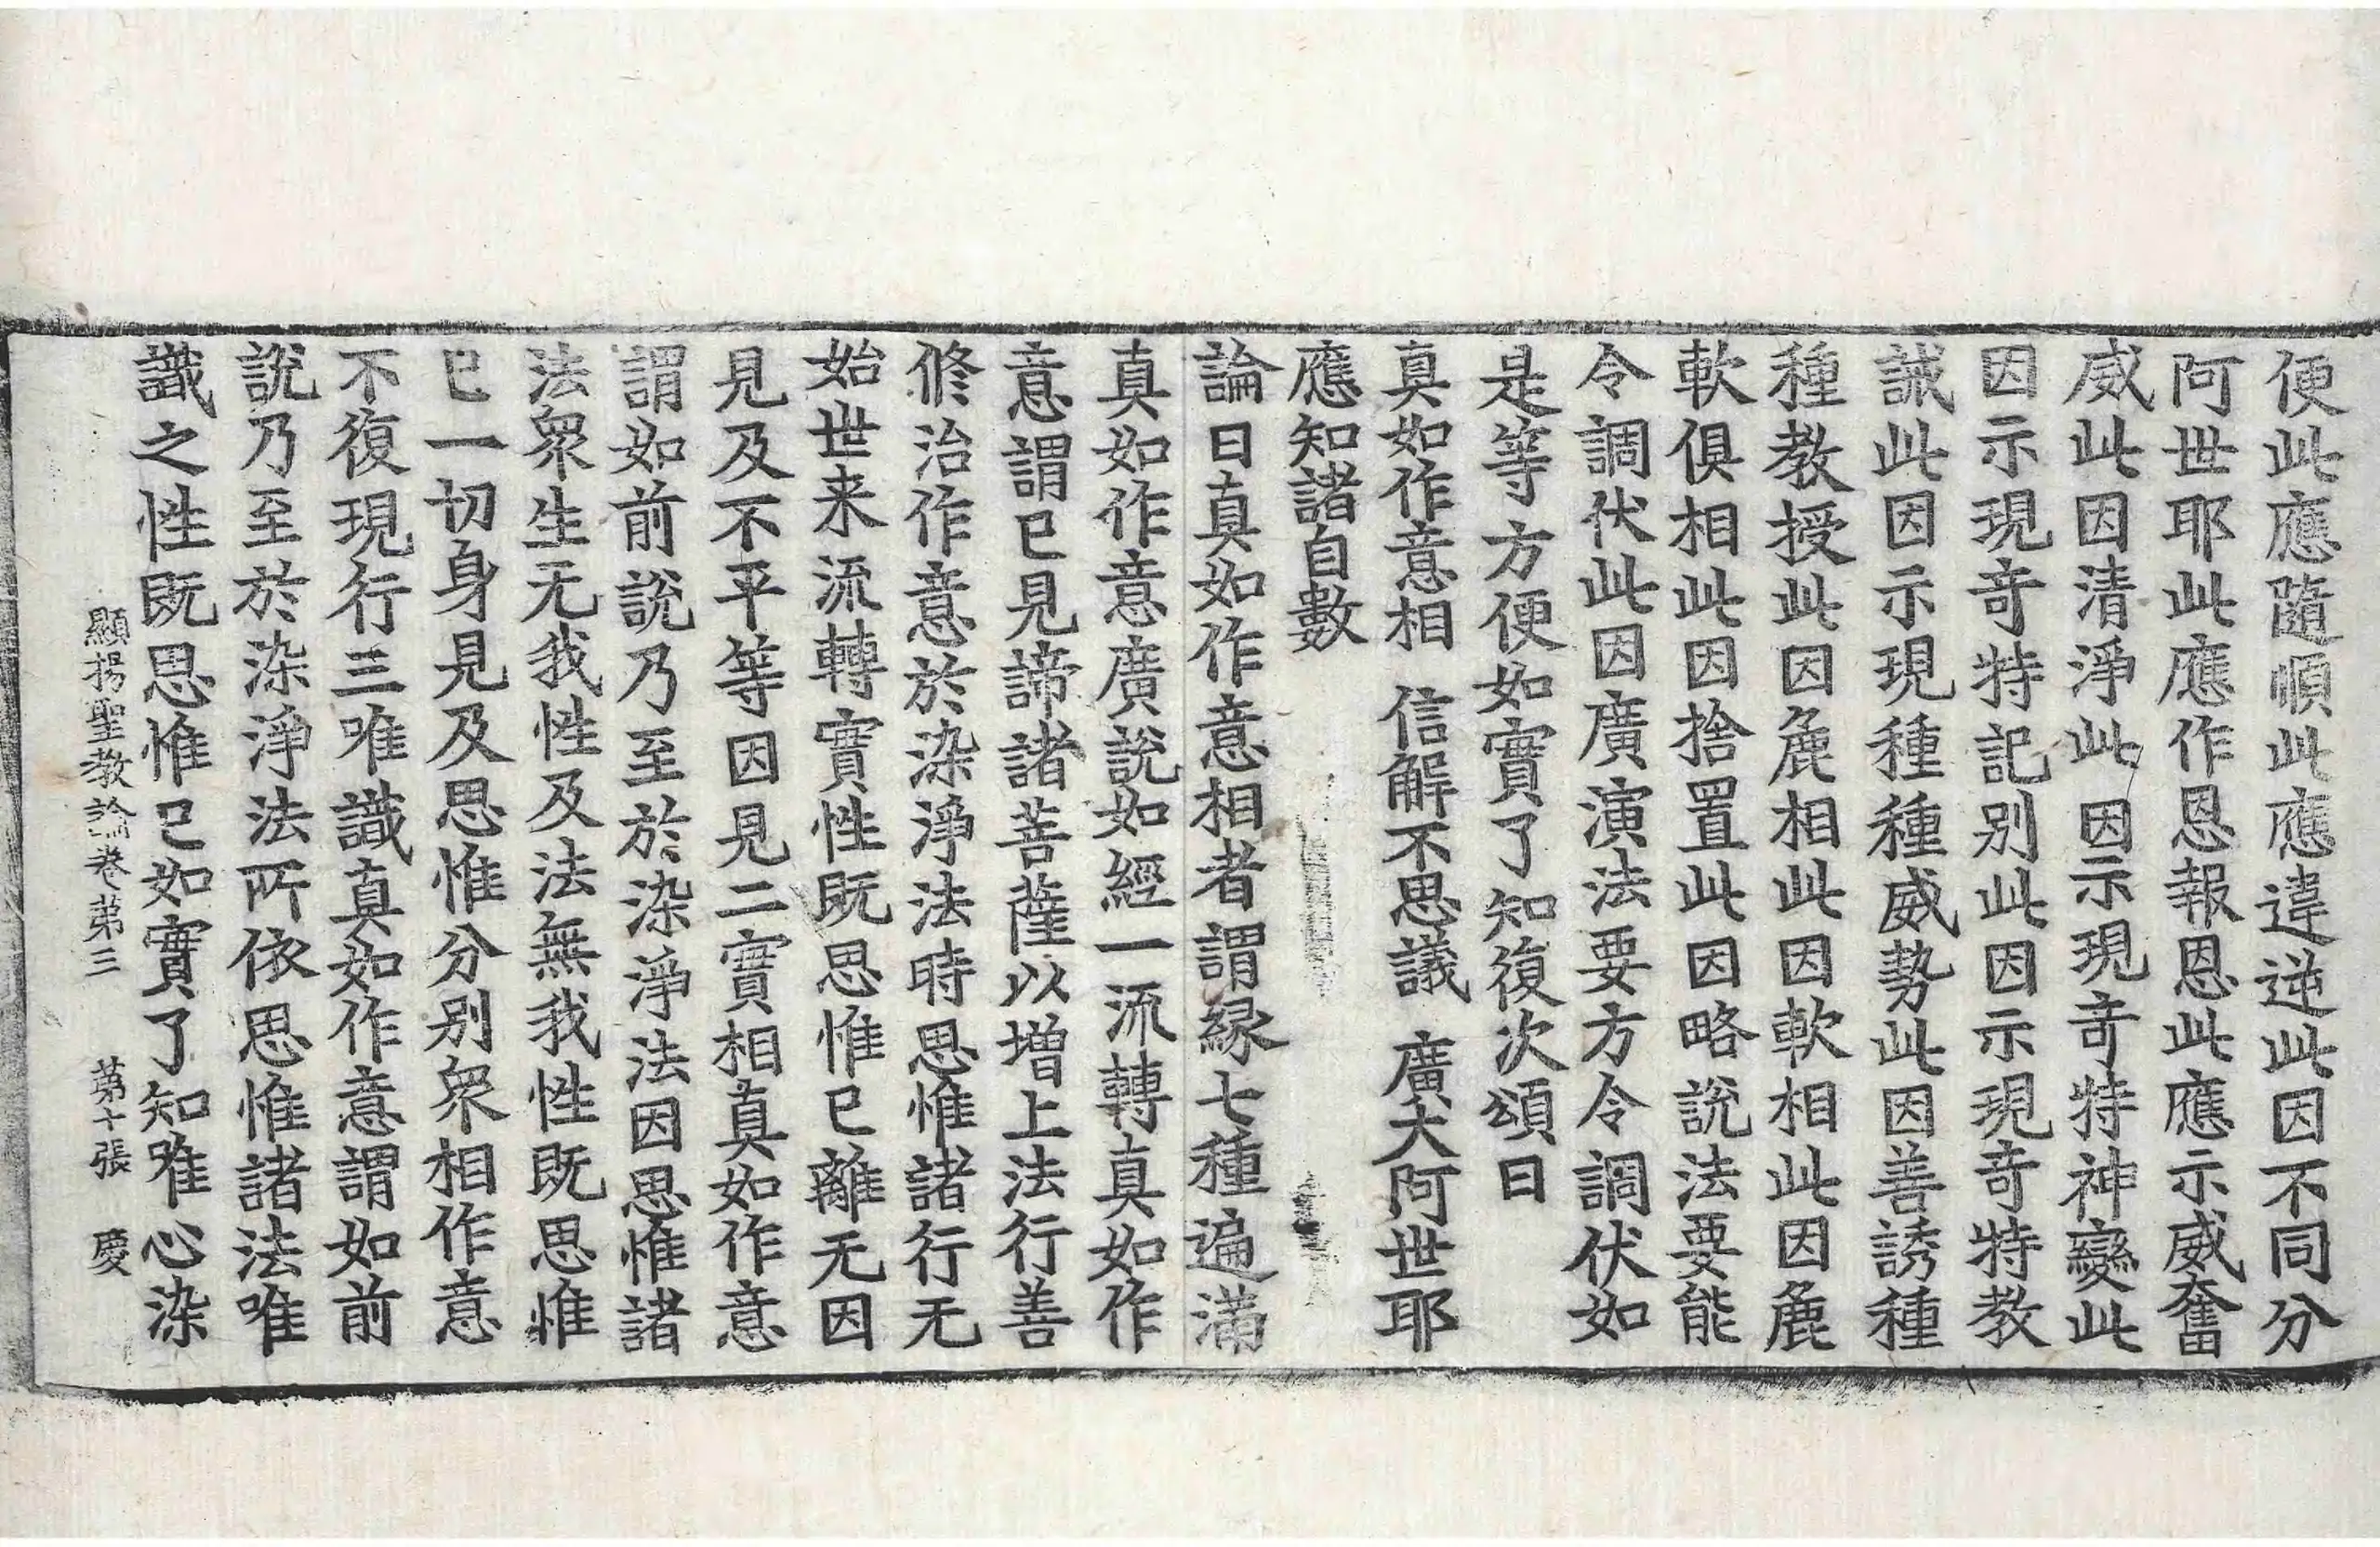 便此應隨順此應違逆此因不同分
阿世耶此應作恩報恩此應示威奮
威此因清淨此因示現竒特神變此
因示現竒特記别此因示現竒特教
誡此因示現種種威勢此因善誘種
種教授此因麁相此因軟相此因麁
軟俱相此因捨置此因略說法要能
令調伏此因廣演法要方令調伏如
是等方便如實了知復次頌曰
真如作意相　信解不思議　廣大阿世耶
應知諸自數
論曰真如作意相者謂縁七種遍滿
真如作意廣說如經一流轉真如作
意謂已見諦諸菩薩以增上法行善
修治作意於染淨法時思惟諸行无
始世来流轉實性既思惟已離无因
見及不平等因見二實相真如作意
謂如前說乃至於染淨法因思惟諸
法衆生无我性及法無我性既思惟
已一切身見及思惟分别衆相作意
不復現行三唯識真如作意謂如前
說乃至於染淨法所依思惟諸法唯
識之性既思惟已如實了知唯心染
顯揚聖教論卷第三　第十張　慶